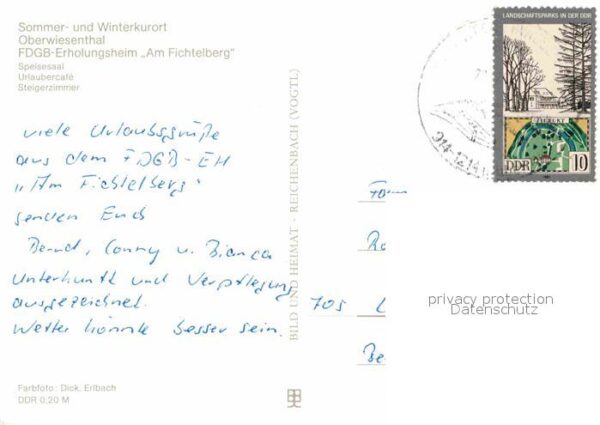 Sommer- und Winterkurort
Oberwiesenthal
FDGB-Erholungsheim „Am Fichtelberg"
Speisesaal
Urlaubercafé
Steigerzimmer
viele Urlaubsgrüße
aus dem FDGB-EH
„Am Fichtelberg"
senden Euch
Bernd, Conny u. Bianca
Unterkunft und Verpflegung
ausgezeichnet.
Wetter könnte besser sein.
Farbfoto: Dick, Erlbach
DDR 0,20 M
BILD UND HEIMAT · REICHENBACH (VOGTL)
LANDSCHAFTSPARKS IN DER DDR
TIEFURT
DDR 10
Fam
705 L
Be
privacy protection
Datenschutz